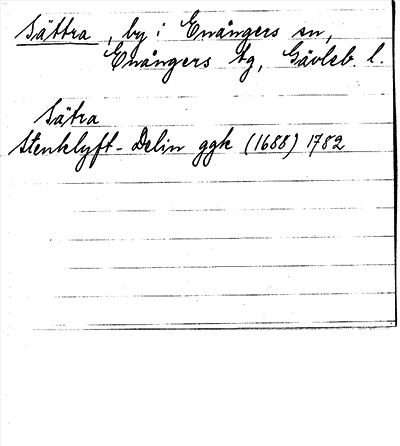 Sättra, by i Enångers sn,
Enångers tg, Gävleb. l.
Sätra
Stenklyft-Delin ggk (1688) 1782